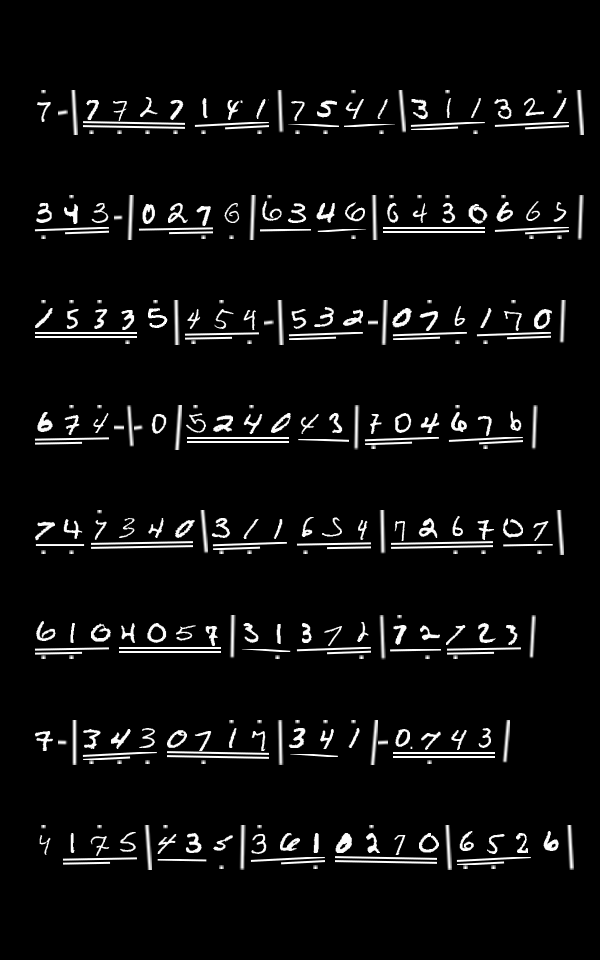 7-|7727 141|75 41|311 321|
343-|0276|63 46|6430 665|
15335|454-|532-|076 170|
674-|-0|5240 43|704 676|
74 7340|311 654|7267 07|
610 4057|31 372|72 723|
7-|343 0717|34 1|-0.743|
4 175|43 5|361 0270|652 6|